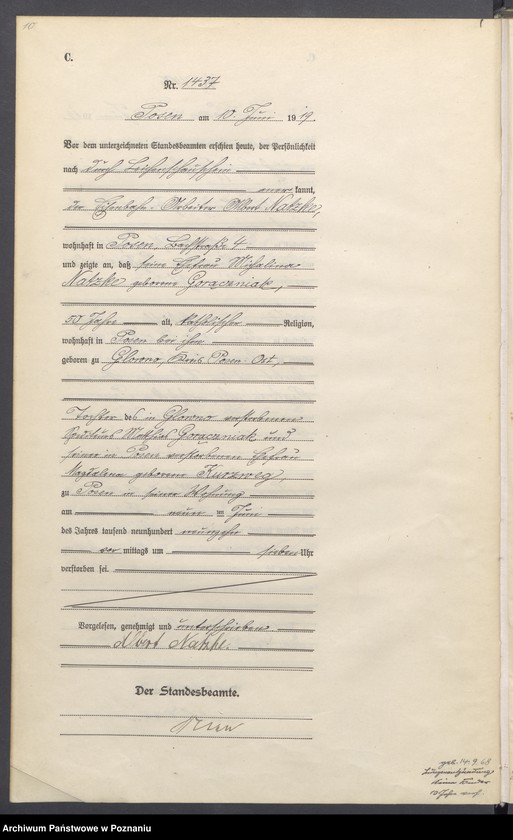 10
C.
Nr. 1437
Posen am 10. Juni 1919.
Vor dem unterzeichneten Standesbeamten erschien heute, der Persönlichkeit
nach durch Leichenschauschein
anerkannt,
der Eisenbahn-Arbeiter Albert Natzke,
wohnhaft in Posen, Bachstraße 4
und zeigte an, daß seine Ehefrau Michalina
Natzke geborene Goraczniak,
50 Jahre alt, katholischer Religion,
wohnhaft in Posen bei ihm
geboren zu Glowno, Kreis Posen-Ost,
Tochter des in Glowno verstorbenen
Goraczniak und
seiner in Posen verstorbenen Ehefrau
Magdalena geborene Kurzweg,
zu Posen in seiner Wohnung
am neun ten Juni
des Jahres tausend neunhundert neunzehn
vor mittags um sieben Uhr
verstorben sei.
Vorgelesen, genehmigt und unterschrieben
Albert Natzke.
Der Standesbeamte.
geb. 14.9.68
keine Kinder
Archiwum Państwowe w Poznaniu